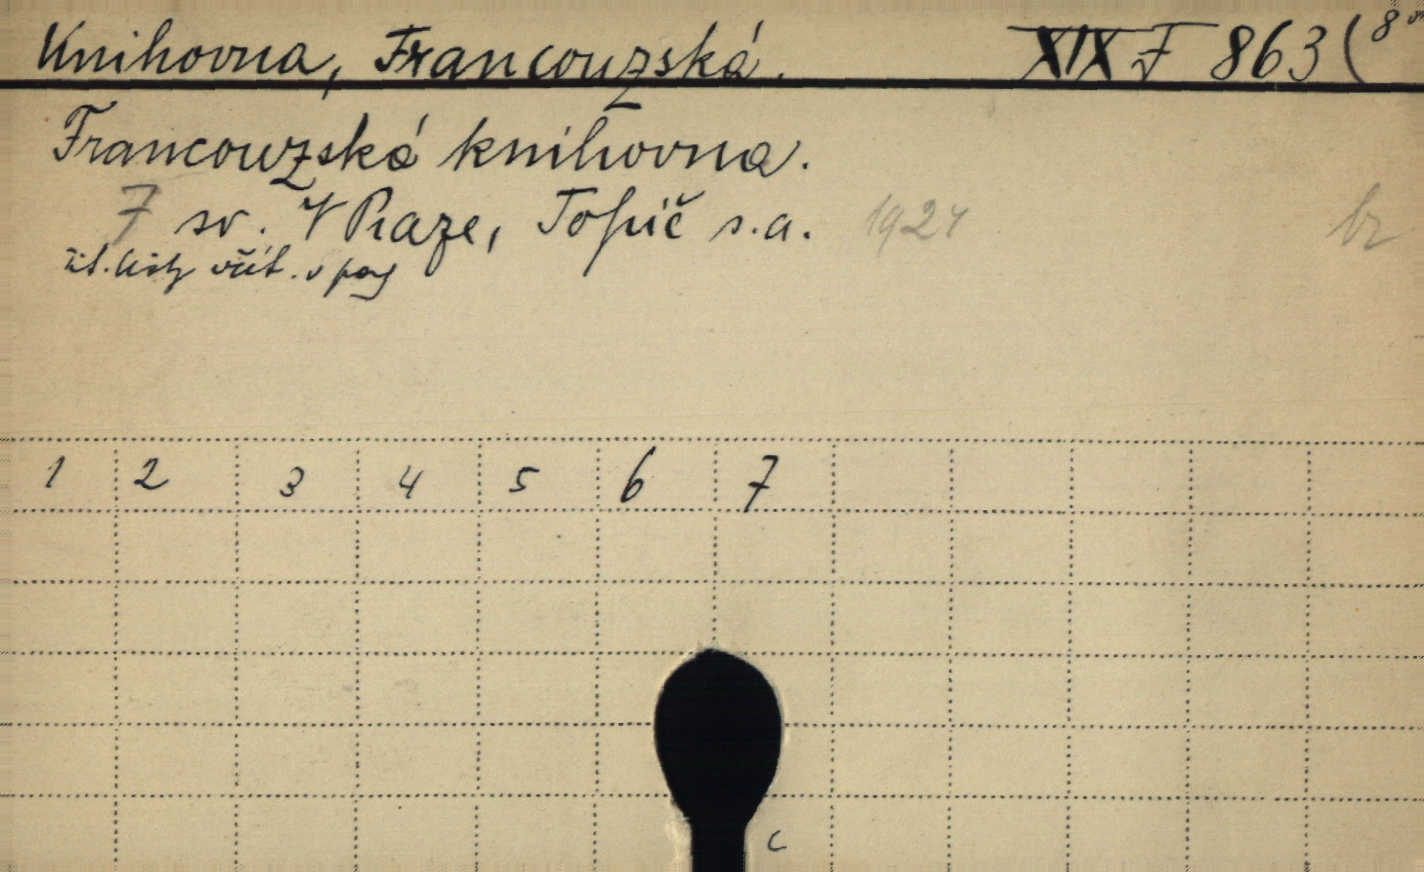 Knihovna, Francouzská. XIX F 863 (8°
Francouzská knihovna.
7 sv. V Praze, Topič s.a. 1924 br
tit. listy včít. v pag
1 2 3 4 5 6 7
c